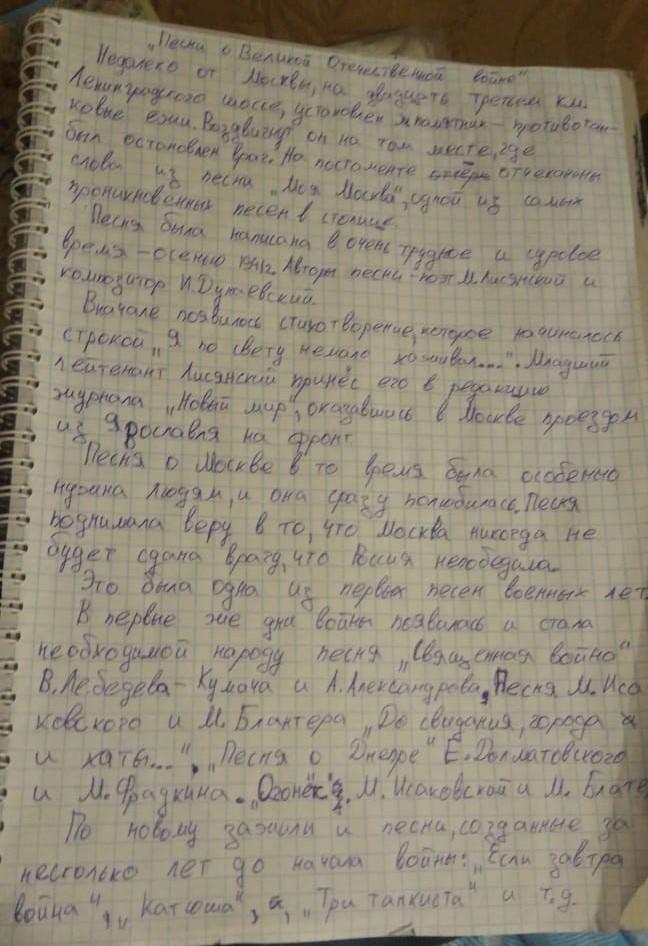 „Песни о Великой Отечественной войне"
Недалеко от Москвы, на двадцать третьем км.
Ленинградского шоссе, установлен памятник – противотан-
ковые ежи. Воздвигнут он на том месте, где
был остановлен враг. На постаменте отчеканны
слова из песни „Моя Москва", одной из самых
проникновенных песен в столице.
Песня была написана в очень трудное и суровое
время – осенью 1941г. Авторы песни – поэт М. Лисянский и
композитор И. Дунаевский.
Вначале появилось стихотворение, которое начиналось
строкой „Я по свету немало хаживал...". Младший
лейтенант Лисянский принёс его в редакцию
журнала „Новый мир", оказавшись в Москве проездом
из Ярославля на фронт.
Песня о Москве в то время была особенно
нужна людям, и она сразу полюбилась. Песня
поднимала веру в то, что Москва никогда не
будет сдана врагу, что Россия непобедима.
Это была одна из первых песен военных лет.
В первые же дни войны появилась и стала
необходимой народу песня „Священная война"
В. Лебедева-Кумача и А. Александрова, Песня М. Иса
ковского и М. Блантера „До свидания, города
и хаты...", „Песня о Днепре" Е. Долматовского
и М. Фрадкина. „Огонёк" М. Исаковской и М. Блате
По новому зажили и песни, созданные за
несколько лет до начала войны: „Если завтра
война", „Катюша", „Три танкиста" и т.д.